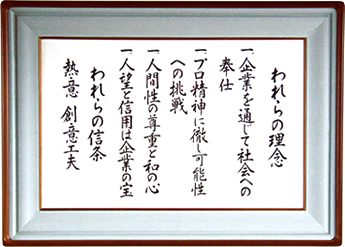 われらの理念
一、企業を通じて社会への
奉仕
一、プロ精神に徹し可能性
への挑戦
一、人間性の尊重と和の心
一、人望と信用は企業の宝
われらの信条
熱意 創意工夫